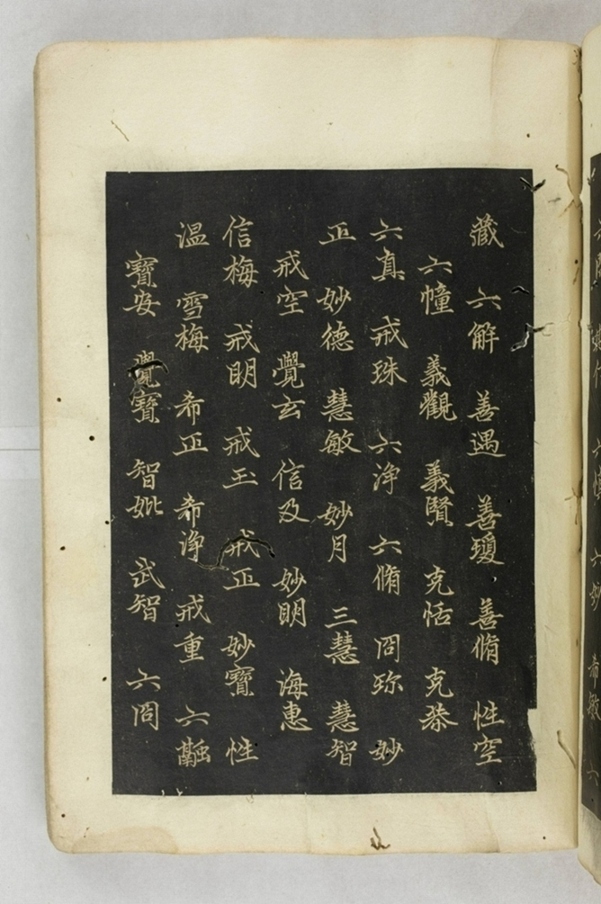 藏 六解 善遇 善瓊 善脩 性空
六幢 義觀 義賢 克恬 克恭
六真 戒珠 六淨 六脩 冏珎 妙
正 妙德 慧敏 妙月 三慧 慧智
戒空 覺玄 信及 妙明 海惠
信梅 戒明 戒玉 戒正 妙寶 性
溫 雪梅 希正 希淨 戒重 六融
寶安 覺寶 智妣 武智 六冏